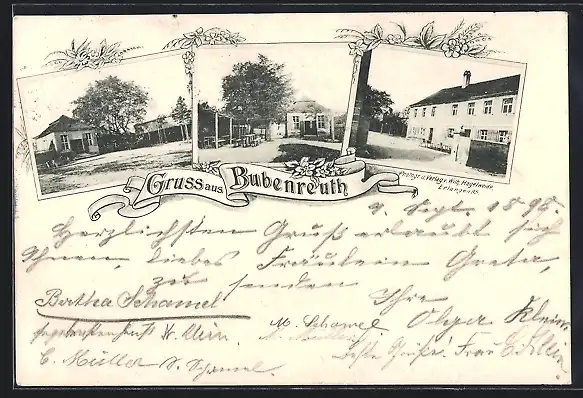 Gruss aus Bubenreuth
Photogr. u. Verlag v. Wilh. Hagelweide,
Erlangen
9. Sept. 1898.
Herzlichsten Gruß erlaubt sich
Ihnen, liebes Fräulein Greta,
zu senden
Ihre
Bertha Schamel
Olga Klein.
M. Schamel
Klein.
Beste Grüße! Frau E. Klein.
C. Müller S. Schamel.